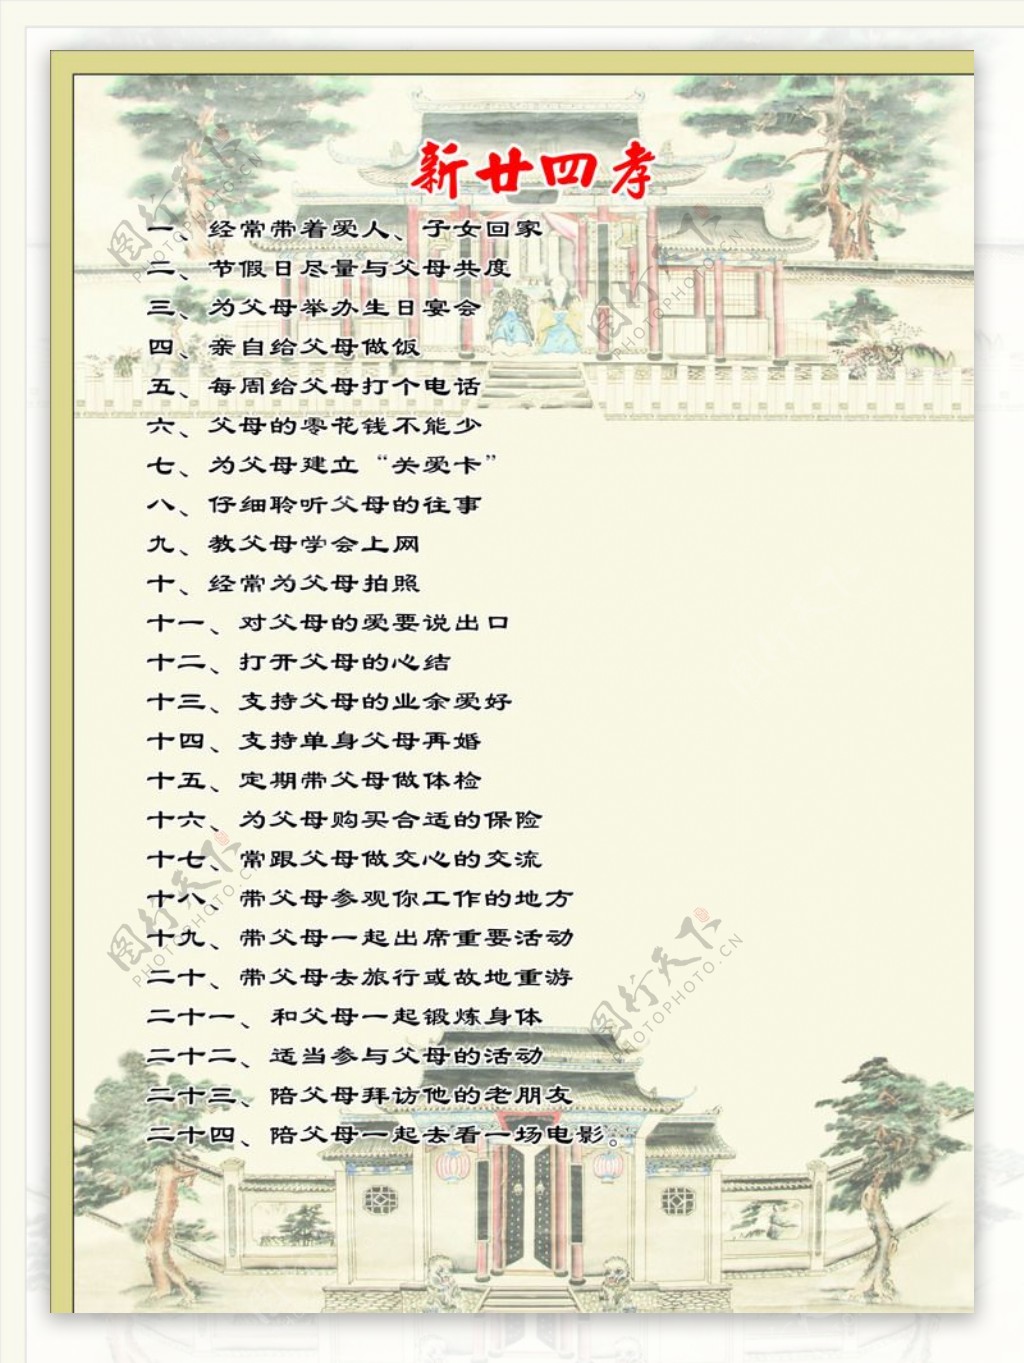 新廿四孝
一、经常带着爱人、子女回家
二、节假日尽量与父母共度
三、为父母举办生日宴会
四、亲自给父母做饭
五、每周给父母打个电话
六、父母的零花钱不能少
七、为父母建立“关爱卡”
八、仔细聆听父母的往事
九、教父母学会上网
十、经常为父母拍照
十一、对父母的爱要说出口
十二、打开父母的心结
十三、支持父母的业余爱好
十四、支持单身父母再婚
十五、定期带父母做体检
十六、为父母购买合适的保险
十七、常跟父母做交心的交流
十八、带父母参观你工作的地方
十九、带父母一起出席重要活动
二十、带父母去旅行或故地重游
二十一、和父母一起锻炼身体
二十二、适当参与父母的活动
二十三、陪父母拜访他的老朋友
二十四、陪父母一起去看一场电影。
图行天下
PHOTOPHOTO.CN
图行天下
PHOTOPHOTO.CN
图行天下
PHOTOPHOTO.CN
图行天下
PHOTOPHOTO.CN